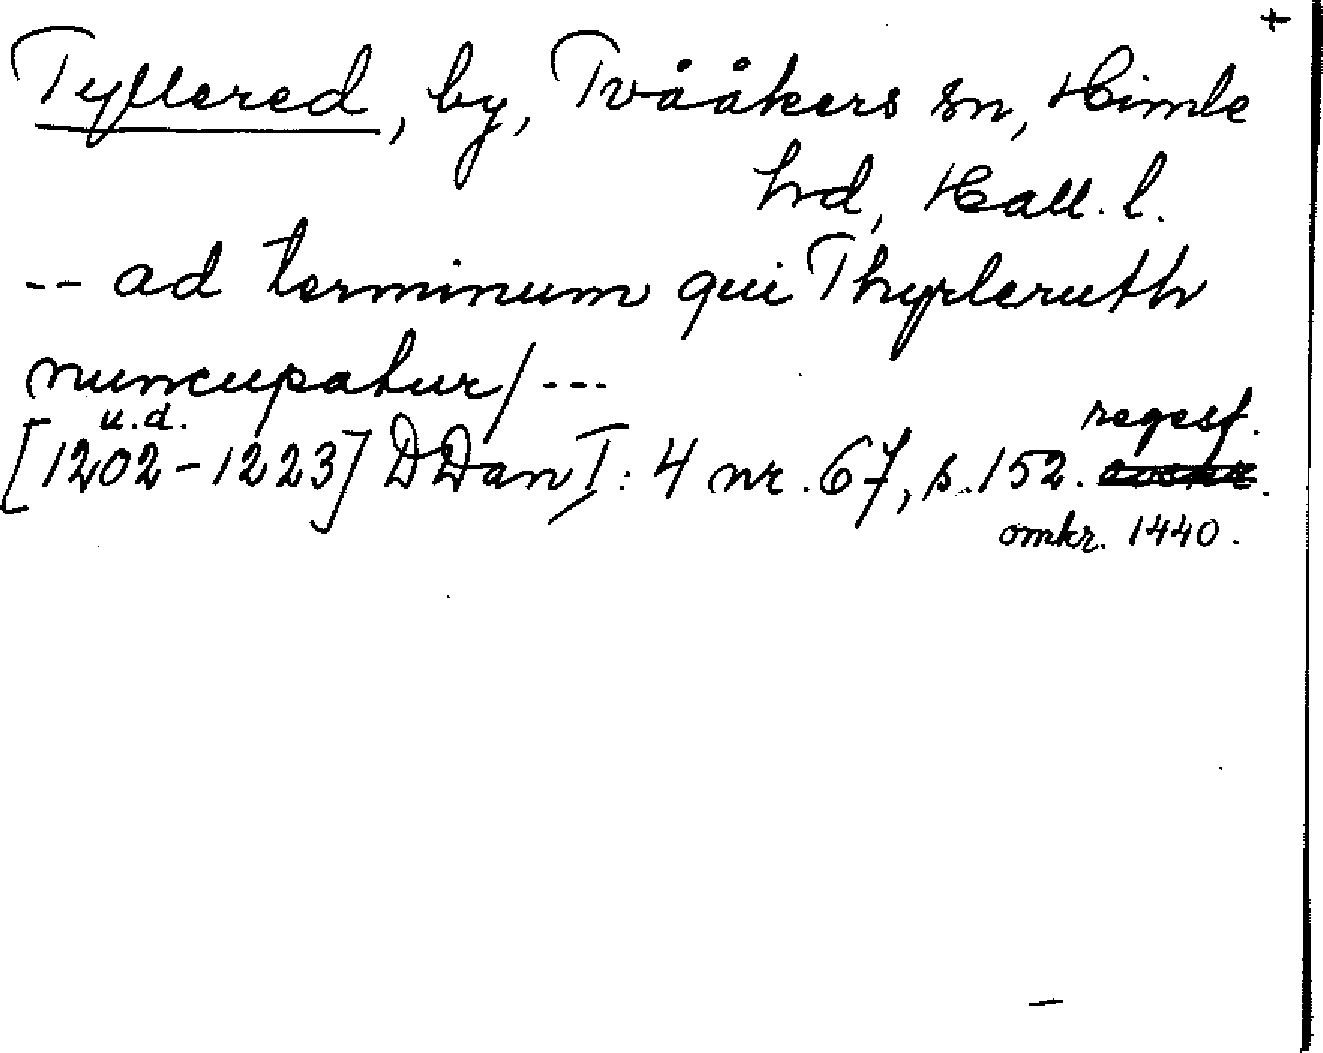 +
Tyllered, by, Tvååkers sn, Himle
hrd, Hall. l.
-- ad terminum qui Thyrleruth
nuncupatur/ ---
u.d. regest.
[1202-1223] DDan I: 4 nr. 67, s. 152.
omkr. 1440.